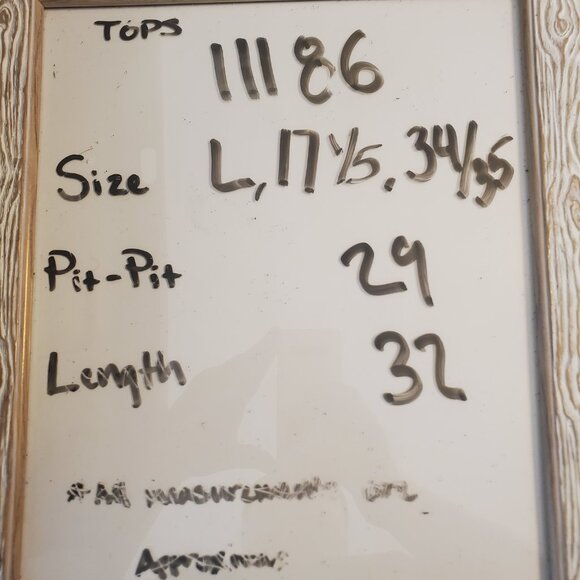 TOPS
11186
Size L, 17 1/5, 34/35
Pit-Pit 29
Length 32
* All measurements are
Approximate